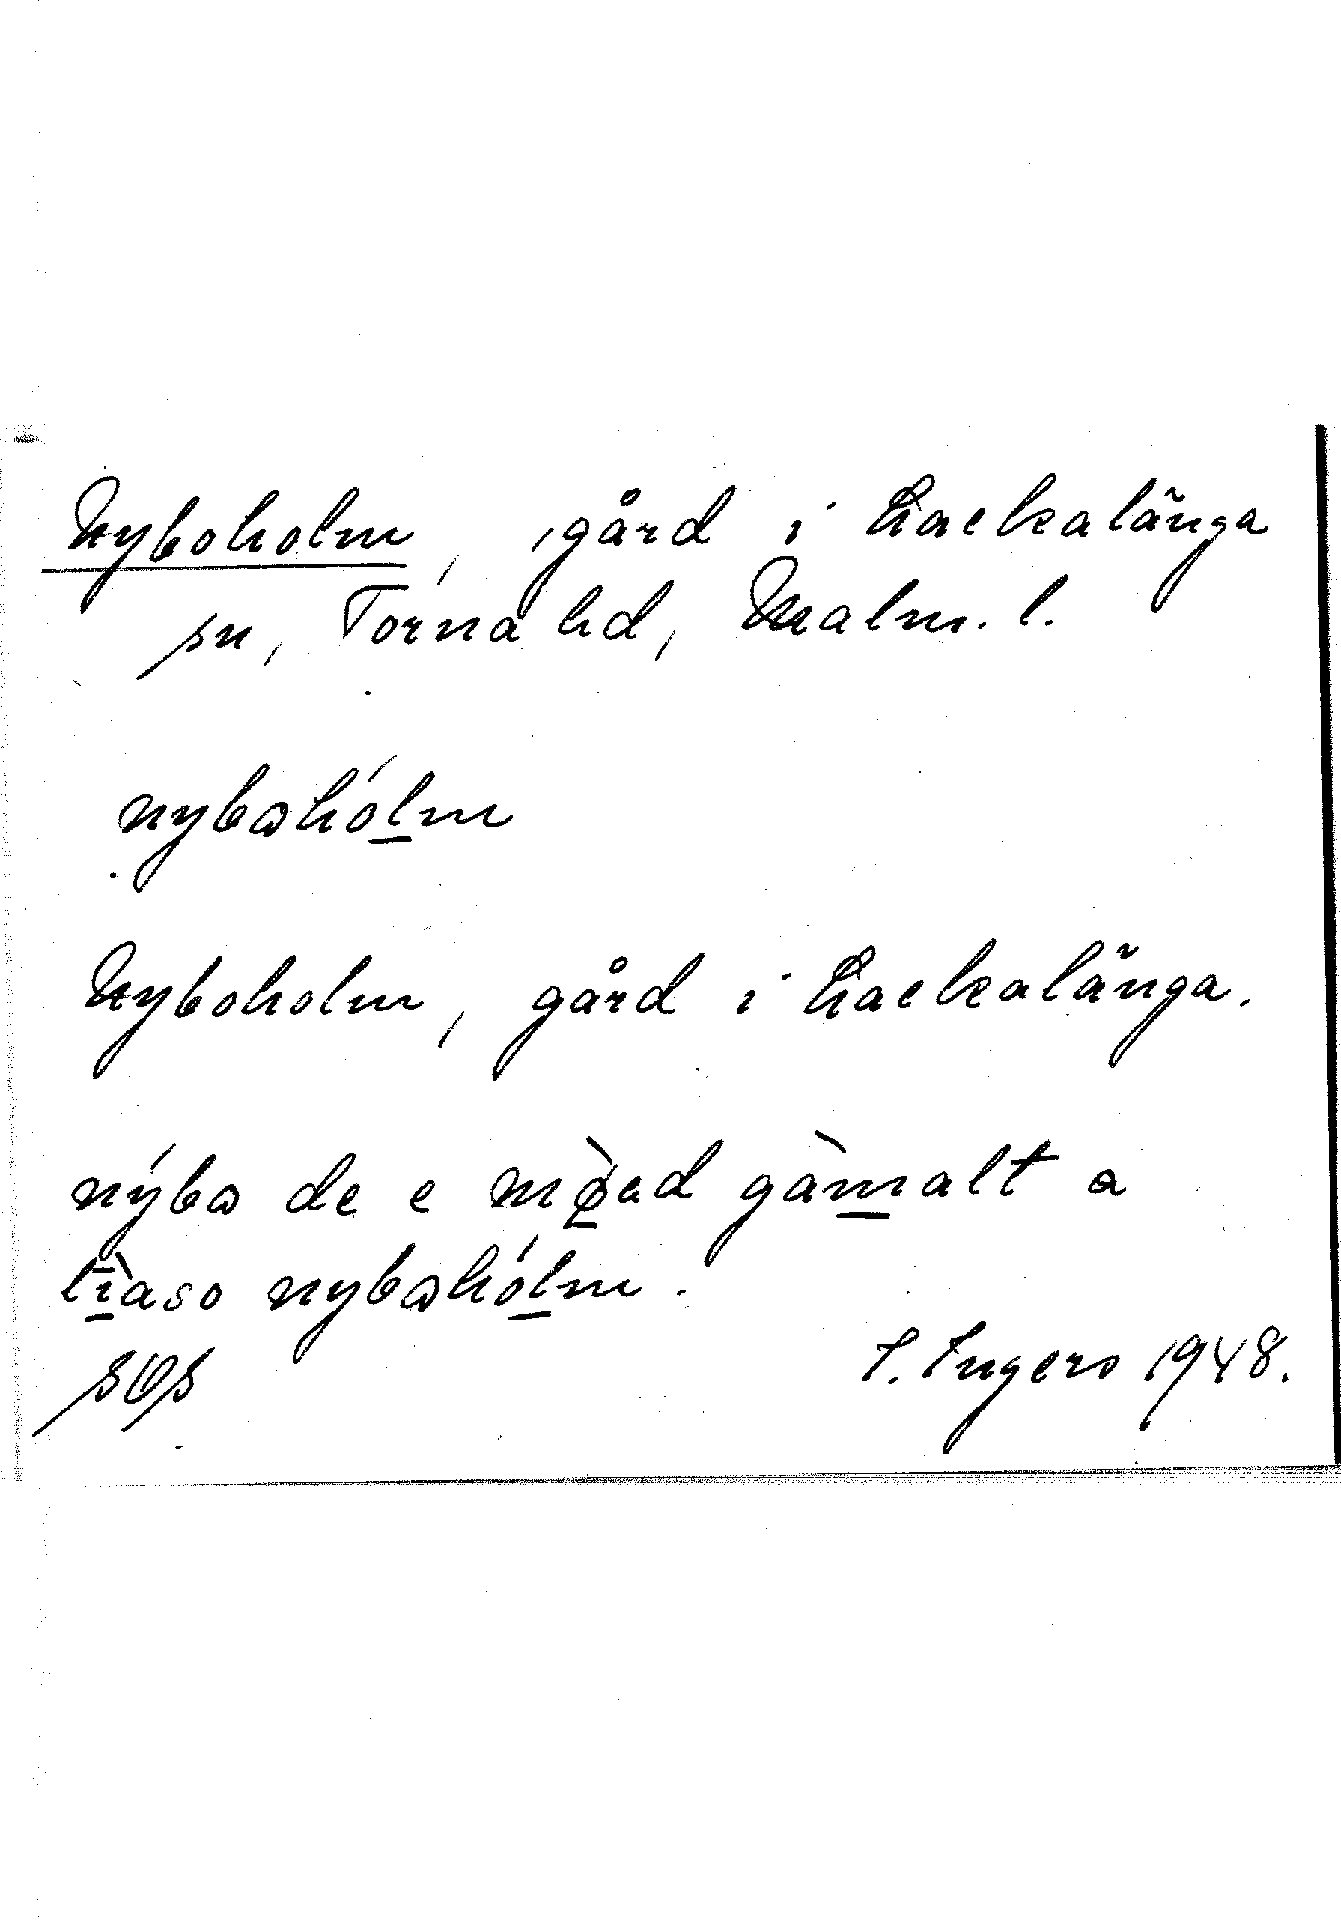 Nyboholm, gård i Hackalänga
sn, Torna hd, Malm. l.
nybωhólm
Nyboholm, gård i Hackalänga.
nýbω de e gàmalt a
nybωhólm.
I. Ingers 1948.